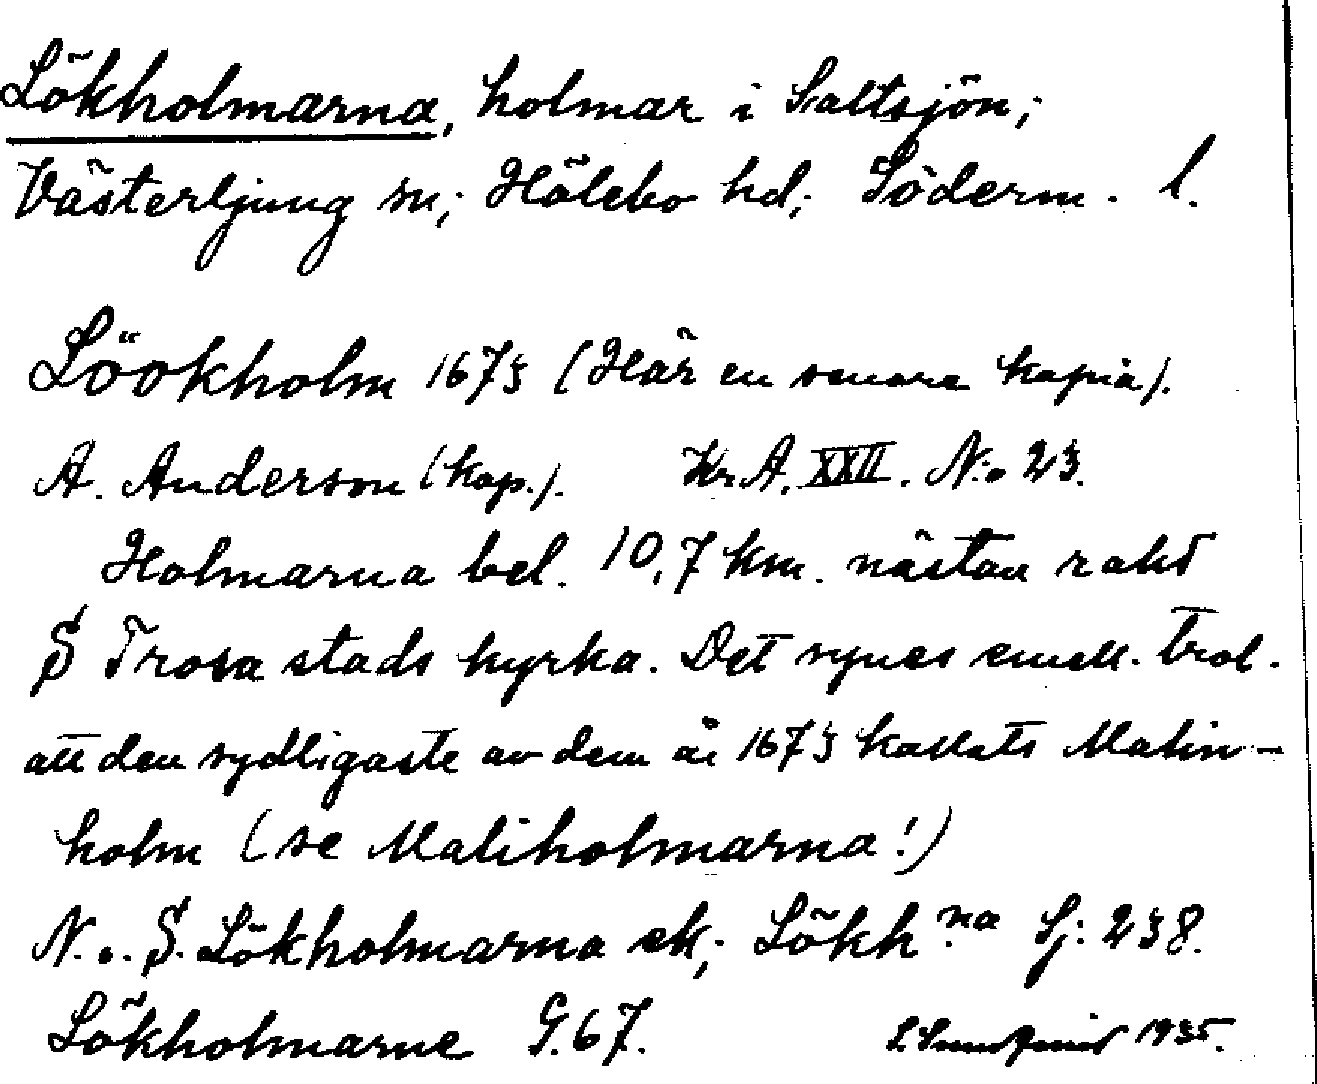 Lökholmarna, holmar i Saltsjön;
Västerljung sn; Hölebo hd; Söderm. l.
Löökholm 1673 (Här en senare kopia).
A. Anderson (kop.). Kr. A. XXII. No 23.
Holmarna bel. 10,7 km. nästan rakt
S Trosa stads kyrka. Det synes emell. trol.
att den sydligaste av dem är 1673 kallats Malin-
holm (se Maliholmarna!)
N. o. S. Lökholmarna ek; Lökh:na Sj: 238.
Lökholmarne G. 67. 1935.